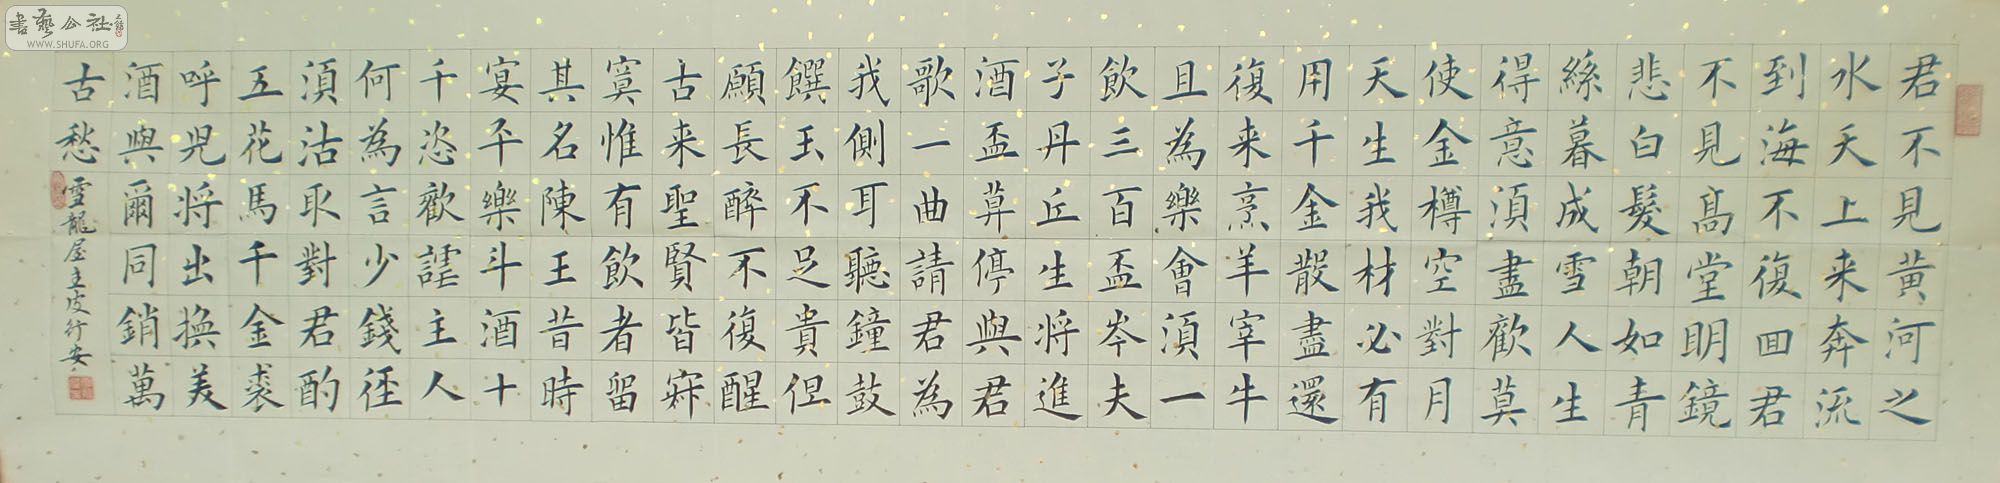 君不見黃河之
水天上来奔流
到海不復回君
不見高堂明鏡
悲白髮朝如青
絲暮成雪人生
得意須盡歡莫
使金樽空對月
天生我材必有
用千金散盡還
復来烹羊宰牛
且為樂會須一
飲三百盃岑夫
子丹丘生将進
酒盃莫停與君
歌一曲請君為
我側耳聽鐘鼓
饌玉不足貴但
願長醉不復醒
古来聖賢皆寂
寞惟有飲者留
其名陳王昔時
宴平樂斗酒十
千恣歡謔主人
何為言少錢徑
須沽取對君酌
五花馬千金裘
呼児将出換美
酒與爾同銷萬
古愁
雪龍屋主皮行安
書藝公社
WWW.SHUFA.ORG